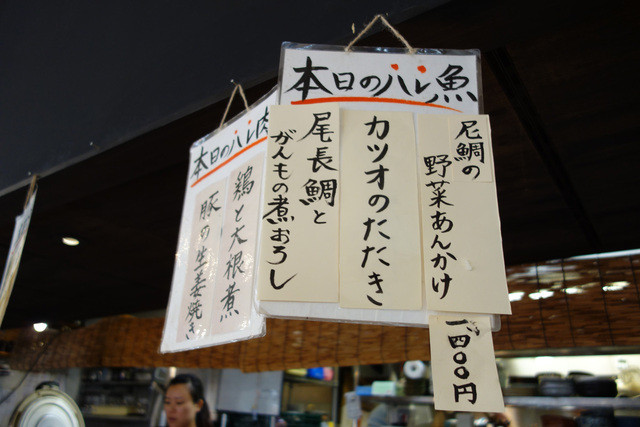 本日のハレ魚
尼鯛の
野菜あんかけ
一、四〇〇円
カツオのたたき
尾長鯛と
がんもの煮おろし
本日のハレ肉
鶏と大根煮
豚の生姜焼き